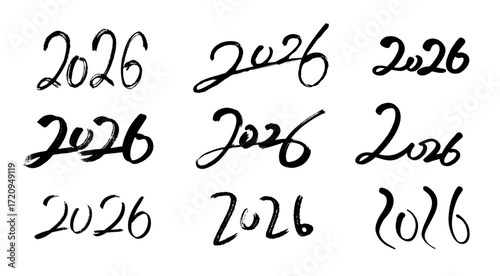 2026 2026 2026
2026 2026 2026
2026 2026 2026
Adobe Stock | #1720949119